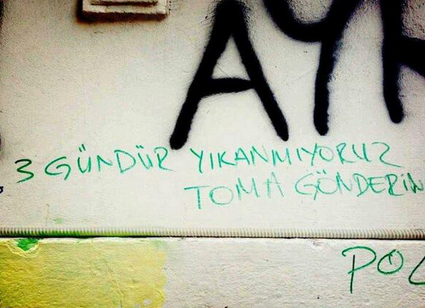 AY
3 GÜNDÜR YIKANMIYORUZ
TOMA GÖNDERİN
PO